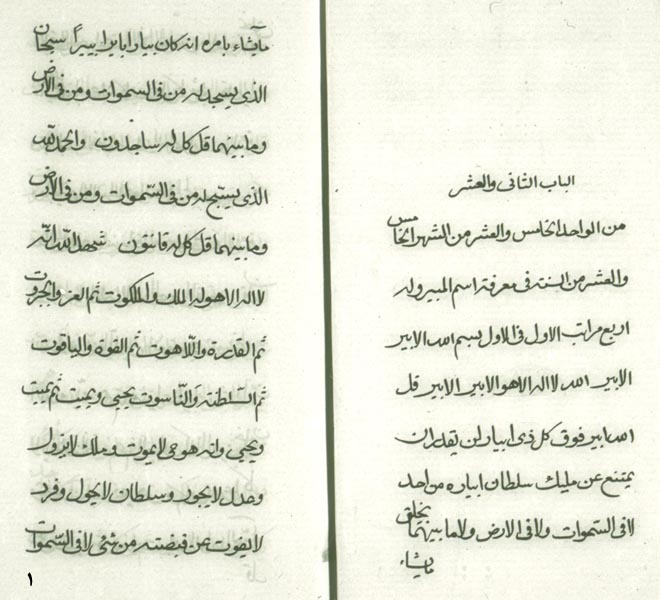 الباب الثانی والعشر
من الواحد الخامس والعشر من الشهر الخامس
والعشر من السنة فی معرفة اسم المبیر وله
اربع مراتب الاول فی الاول بسم الله الابیر
الابیر الله لا اله الا هو الابیر الابیر قل
الله ابیر فوق کل ذی ابیار لن یقدر ان
یمتنع عن ملیك سلطان ابیاره من احد
لا فی السموات ولا فی الارض ولا ما بینهما یخلق
ما یشاء
ما یشاء بامره انه کان بیارا بایرا بییرا سبحان
الذی یسجد له من فی السموات ومن فی الارض
وما بینهما قل کل له ساجدون والحمد لله
الذی یسبح له من فی السموات ومن فی الارض
وما بینهما قل کل له قانتون شهد الله انه
لا اله الا هو له الملك والملکوت ثم العز والجبروت
ثم القدرة واللاهوت ثم القوة والیاقوت
ثم السلطنة والناسوت یحیی ویمیت ثم یمیت
ویحیی وانه هو حی لا یموت وملك لا یزول
وعدل لا یجور وسلطان لا یحول وفرد
لا یفوت عن قبضته من شئ لا فی السموات
١